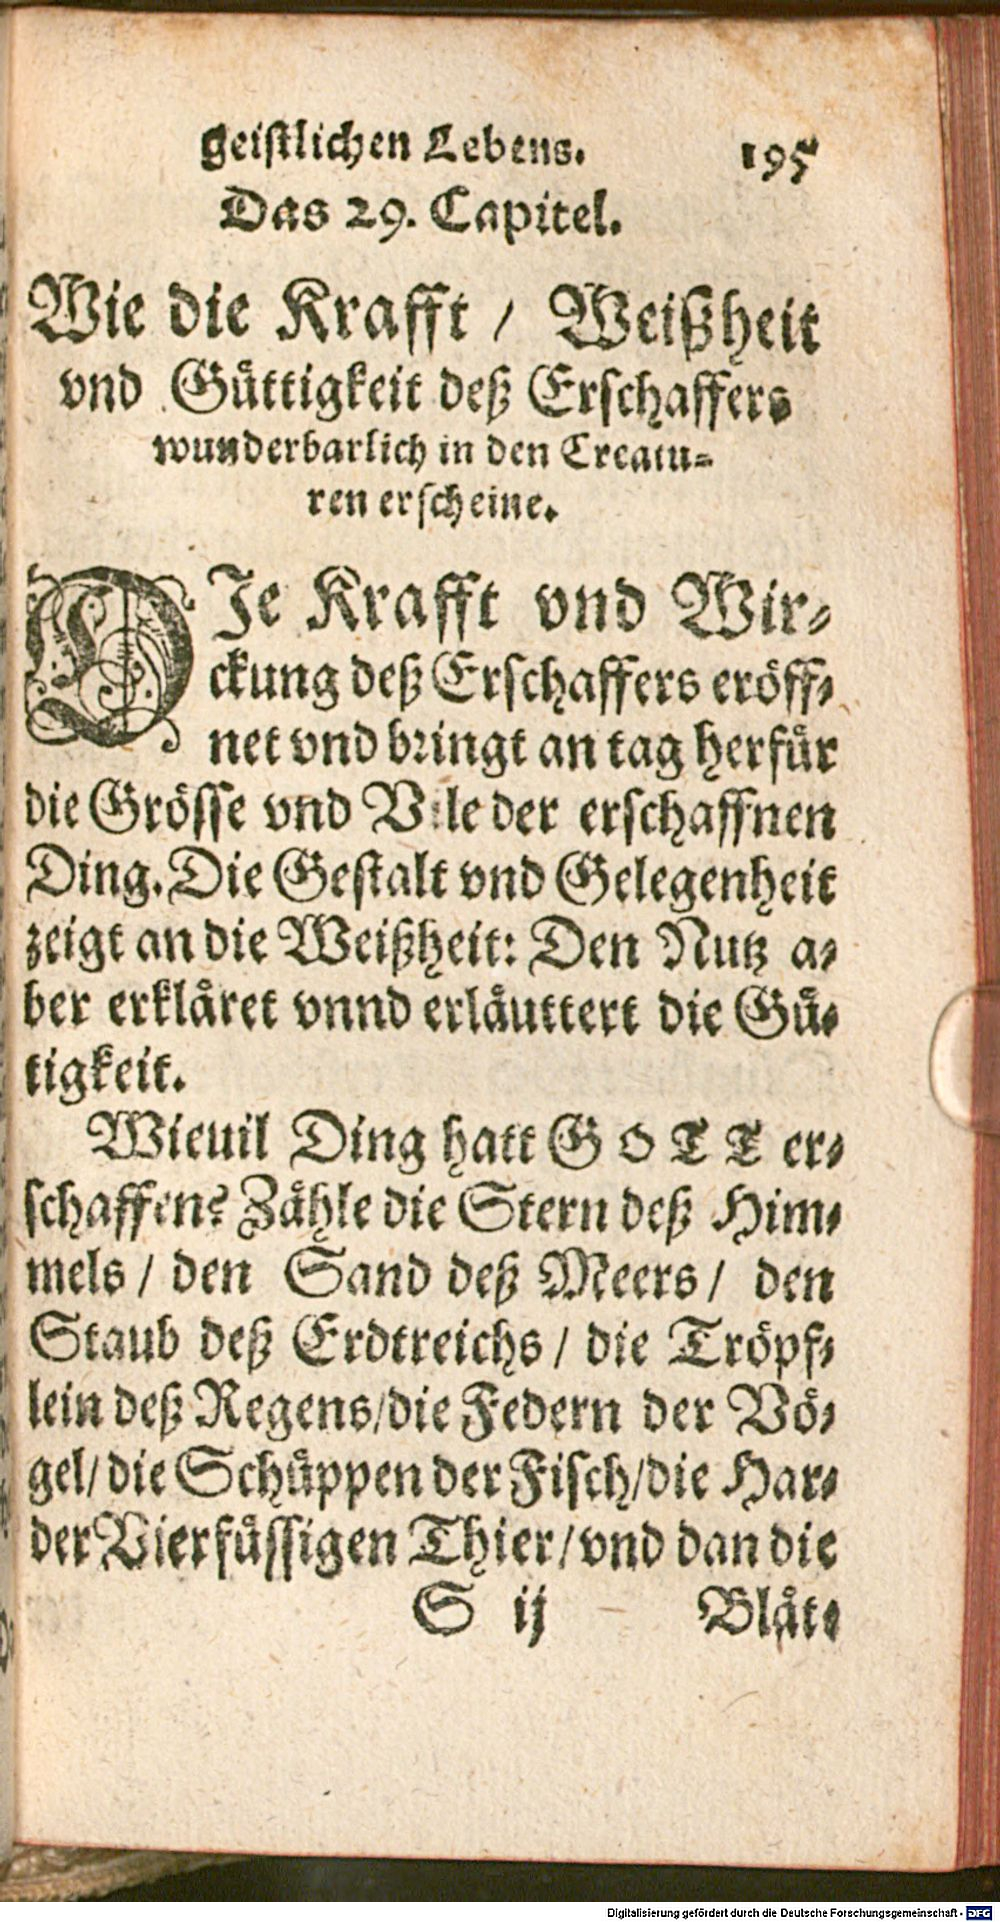 geistlichen Lebens. 195
Das 29. Capitel.
Wie die Krafft / Weißheit
vnd Gůttigkeit deß Erschaffers
wunderbarlich in den Creatu-
ren erscheine.
DIe Krafft vnd Wir-
ckung deß Erschaffers eröff-
net vnd bringt an tag herfůr
die Grösse vnd Vile der erschaffnen
Ding. Die Gestalt vnd Gelegenheit
zeigt an die Weißheit: Den Nutz a-
ber erklåret vnnd erlåuttert die Gů-
tigkeit.
Wieuil Ding hatt GOTT er-
schaffen? Zåhle die Stern deß Him-
mels / den Sand deß Meers / den
Staub deß Erdtreichs / die Tröpf-
lein deß Regens/die Federn der Vö-
gel/die Schůppen der Fisch/die Har-
der Vierfůssigen Thier/vnd dan die
S ij Blåt-
Digitalisierung gefördert durch die Deutsche Forschungsgemeinschaft - DFG